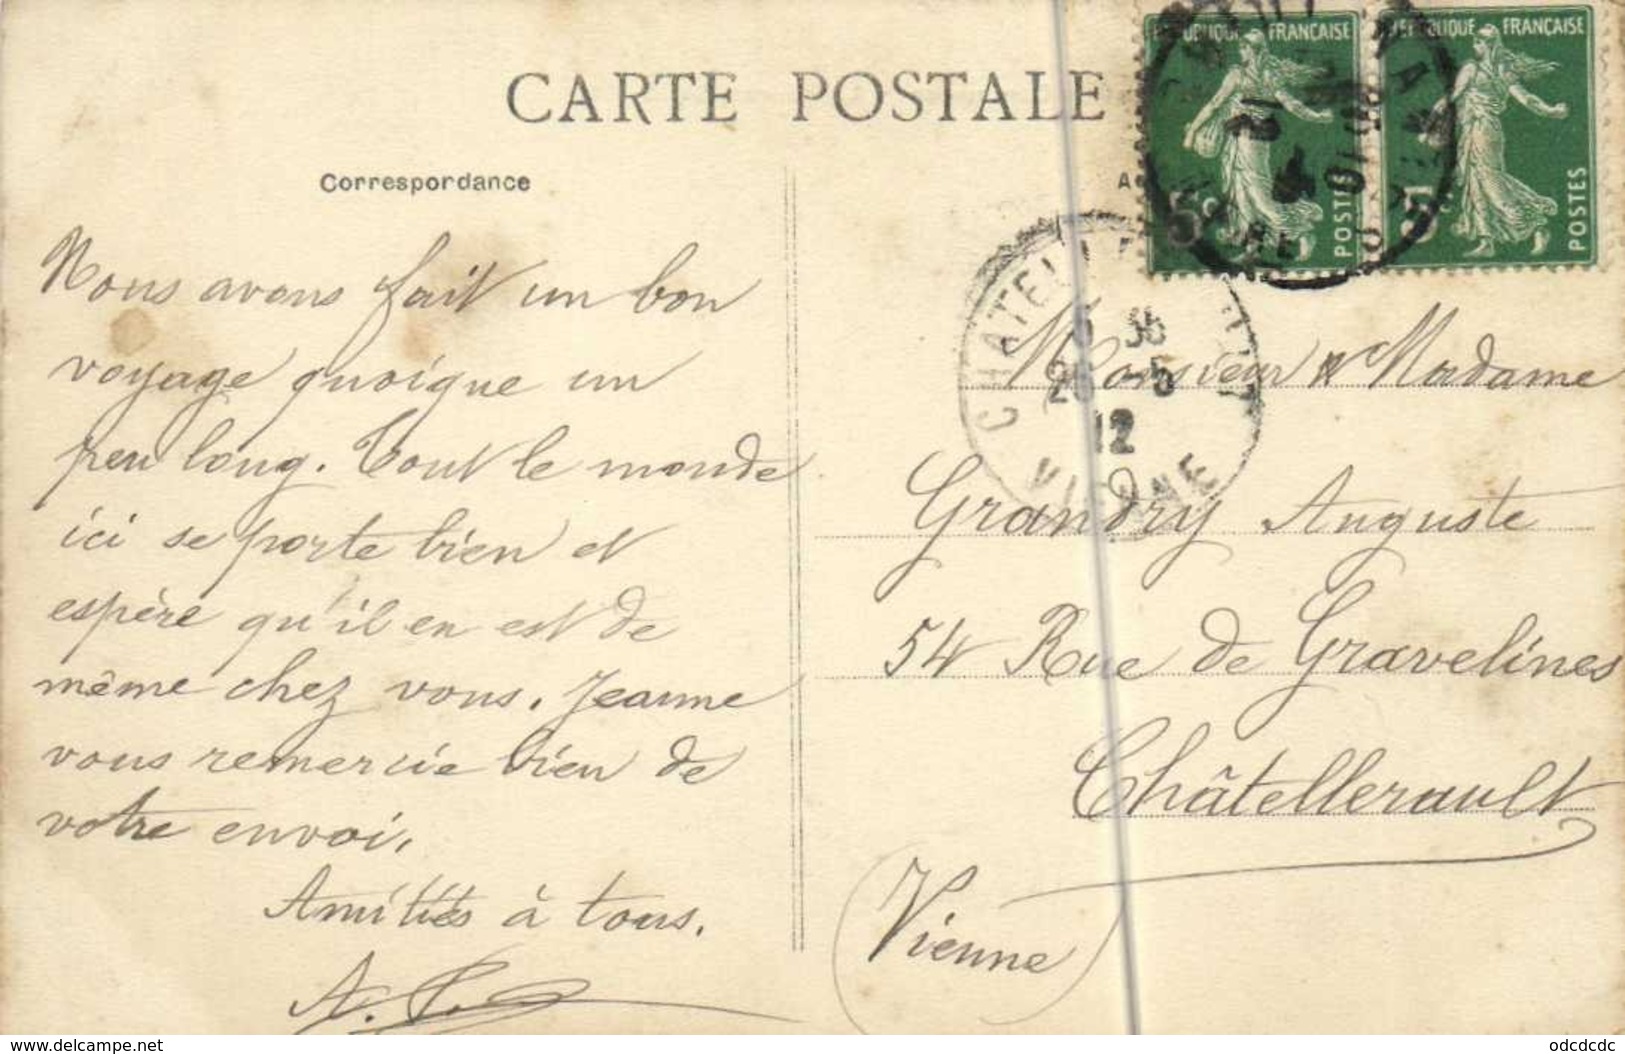 CARTE POSTALE
Correspordance
Nous avons fait un bon
voyage quoique un
peu long. Tout le monde
ici se porte bien et
espère qu'il en est de
même chez vous. Jeanne
vous remercie bien de
votre envoi.
Amitiés à tous.
RÉPUBLIQUE FRANÇAISE
POSTES
RÉPUBLIQUE FRANÇAISE
POSTES
12
12
VIENNE
Monsieur & Madame
Grandry Auguste
54 Rue de Gravelines
Châtellerault
(Vienne)
www.delcampe.net
odcdcdc